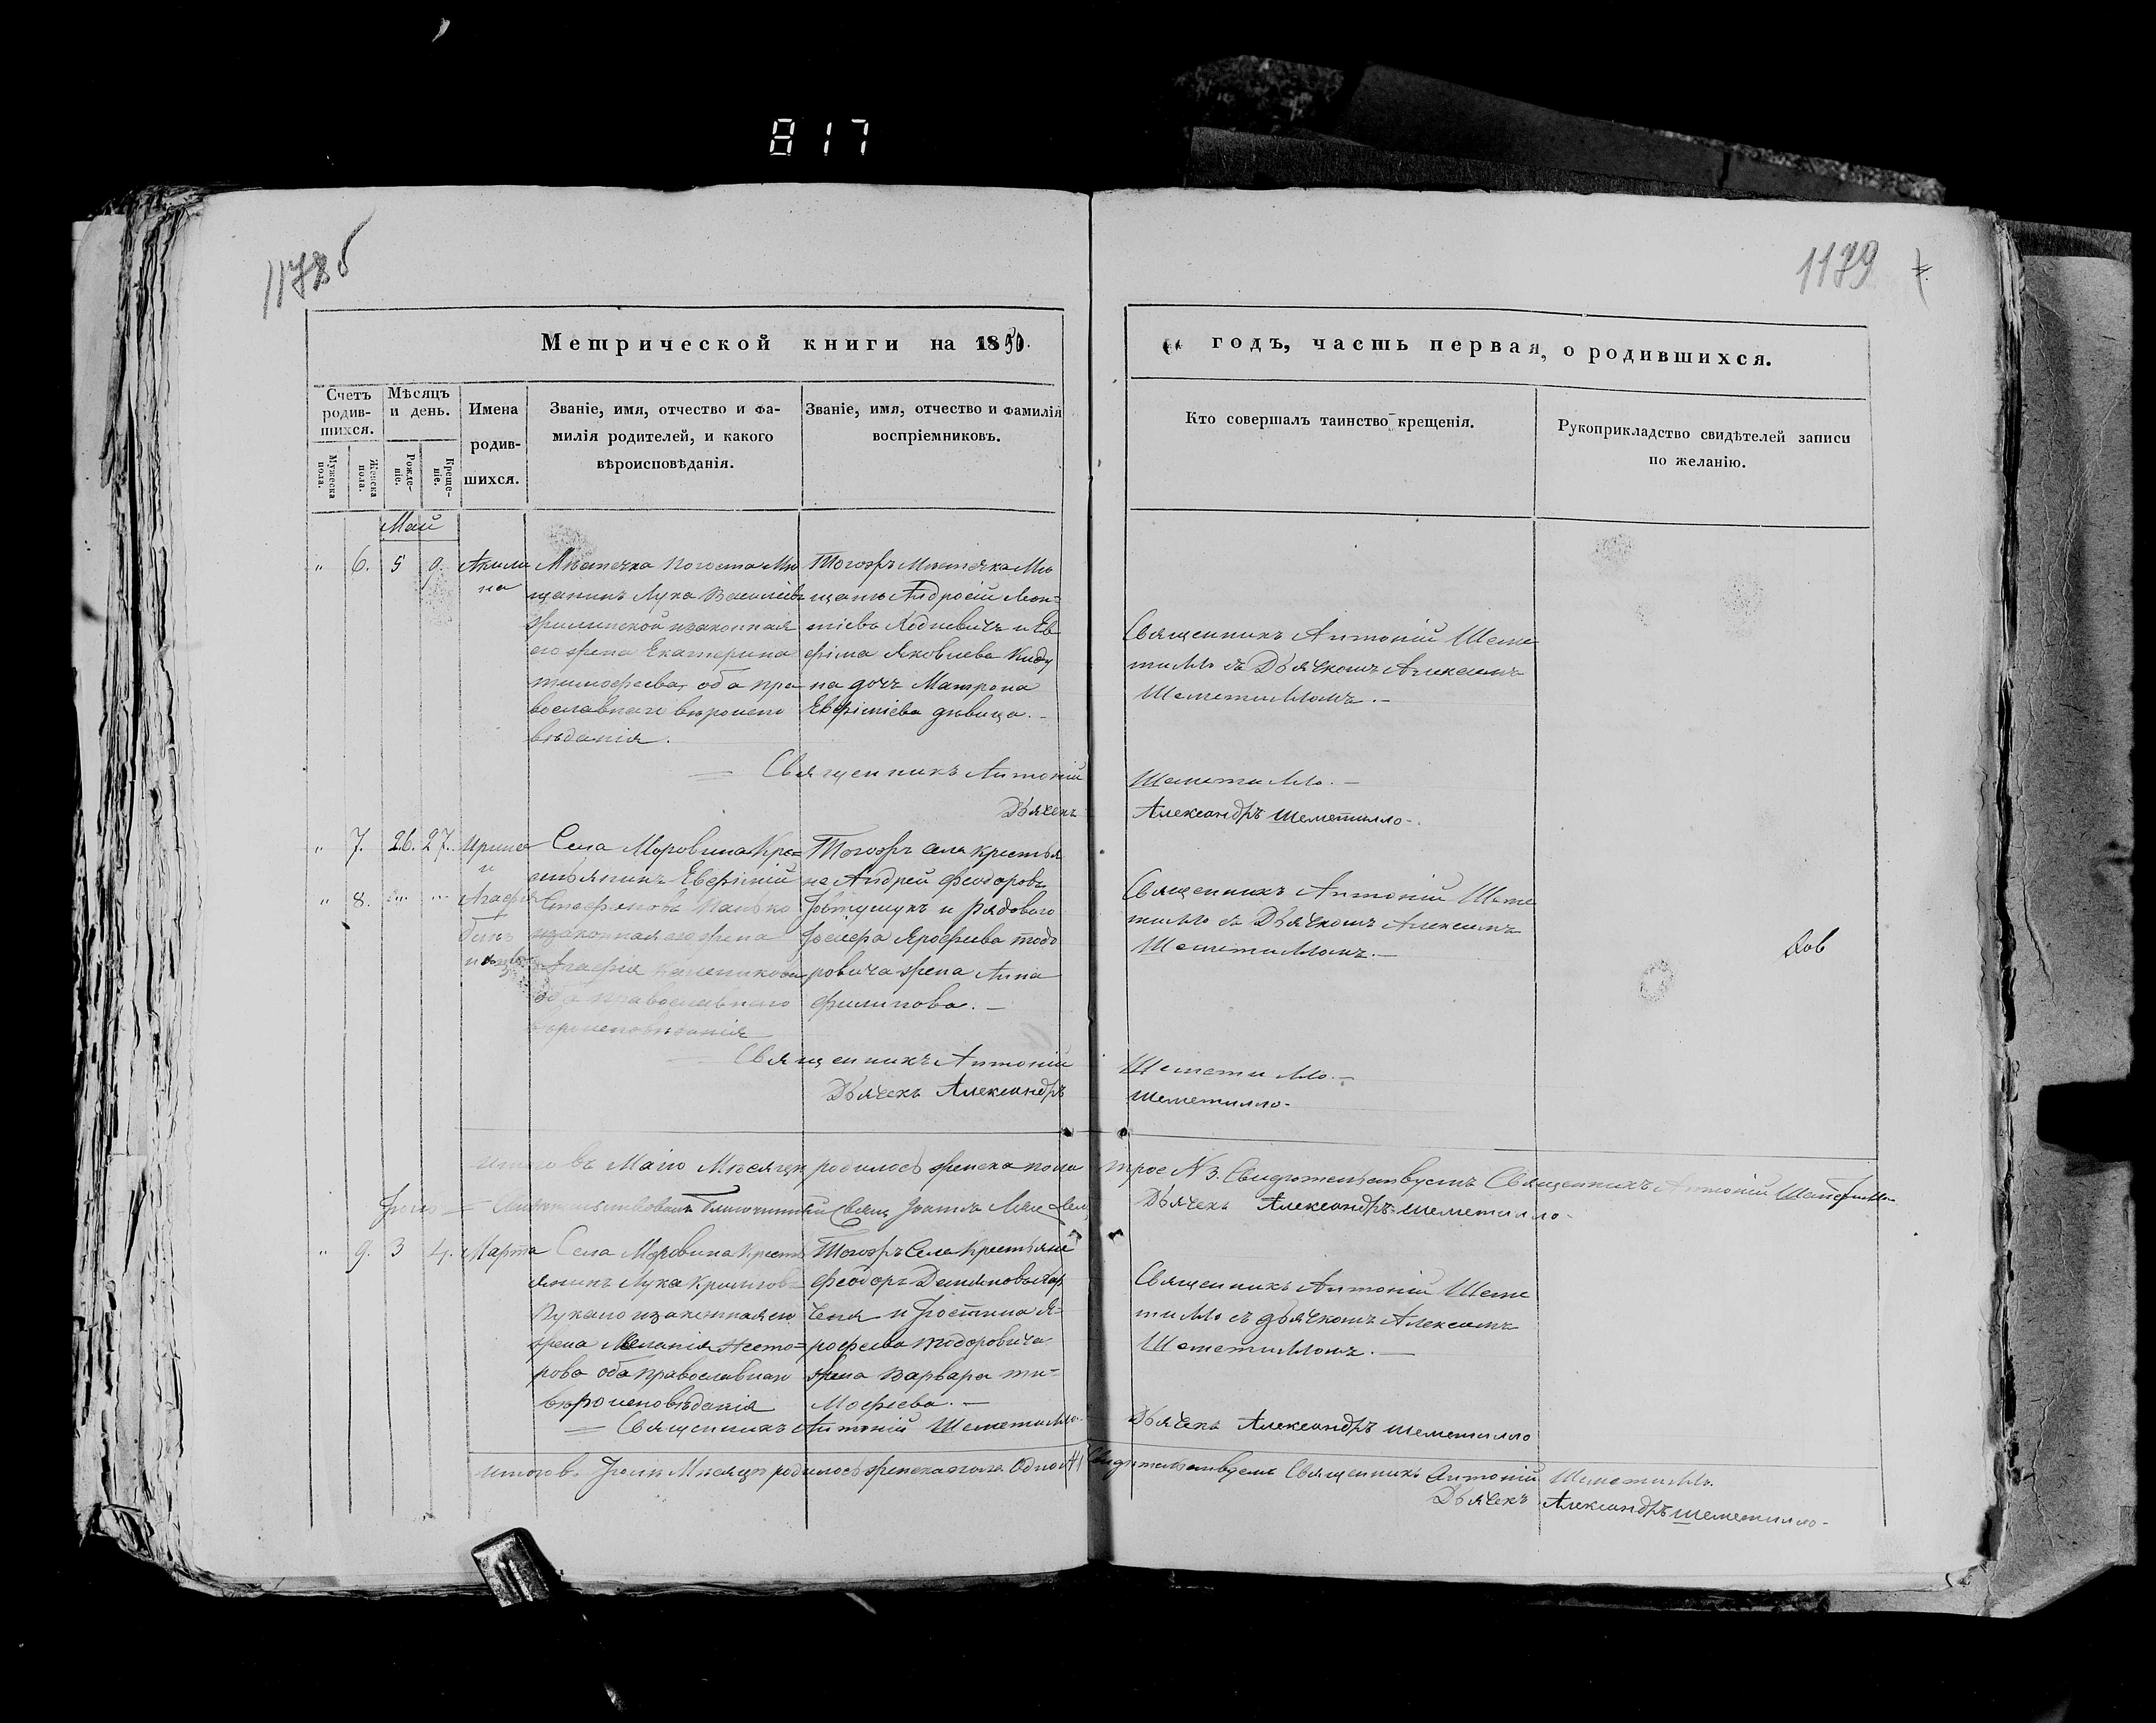 817
1178б
1179
Метрической книги на 1850.
годъ, часть первая, о родившихся.
Счетъ родив-шихся.
Мужеска пола.
Женска пола.
Мѣсяцъ и день.
Рожде-ніе.
Креще-ніе.
Имена родив-шихся.
Званіе, имя, отчество и фа-
милія родителей, и какого
вѣроисповѣданія.
Званіе, имя, отчество и фамилія
воспріемниковъ.
Кто совершалъ таинство крещенія.
Рукоприкладство свидѣтелей записи
по желанію.
Май
„ 6. 5 9.
Акили
на
Мѣстечка Погоста Мѣ
щанинъ Лука Василіевъ
и законная
его жена Екатерина
Тимофеева, оба пра-
вославнаго вѣроиспо
вѣданія.
Тогожъ Мѣстечка Мѣ
щанъ Андрей Леон=
тіевъ и Ев
фима Яковлева
на дочь Матрона
Евфиміева дѣвица. –
Священникъ Антоній Шеме
тилло съ Дьячкомъ Алексамъ
Шеметилломъ. –
Священникъ Антоній Шеметилло. –
Дьячекъ Александръ Шеметилло.
„ 7. 26. 27.
Ирина
и
„ 8. „ „
Агафія
близ
нецы
Села Моровина Кре=
стьянинъ Евфимій
Стефановъ Панько
и законная его жена
Агафія
оба православнаго
вѣроисповѣданія
Тогожъ села крестья
не Андрей Феодоровъ
и рядового
Ярофеева Тодо
ровича жена Анна
Филипова. –
Священникъ Антоній Шеме
тилло съ Дьячкомъ Алексамъ
Шеметилломъ. –
Ков
Священникъ Антоній Шеметилло. –
Дьячекъ Александръ Шеметилло.
Итого въ Маію Мѣсяцѣ родилось женска пола трое N 3. Свидѣтельствуемъ Священникъ Антоній Шеметилло
Дьячекъ Александръ Шеметилло.
„ 9. 3 4.
Марта
Села Моровина Кресть
янинъ Лука
и законная его
жена Меланія Несто=
рова оба православнаго
вѣроисповѣданія
Тогожъ Села Крестьяне
Феодоръ Демяновъ
и Іюстина Я=
рофеева Тодоровича
жена Варвара Ти=
мофеева. –
Священникъ Антоній Шеме
тилло съ дьячкомъ Алексамъ
Шеметилломъ. –
Священникъ Антоній Шеметилло.
Дьячекъ Александръ Шеметилло
Итого въ Іюнѣ Мѣсяцѣ родилось женска пола Одно N 1 Свидѣтельствуемъ Священникъ Антоній Шеметилло.
Дьячекъ Александръ Шеметилло.